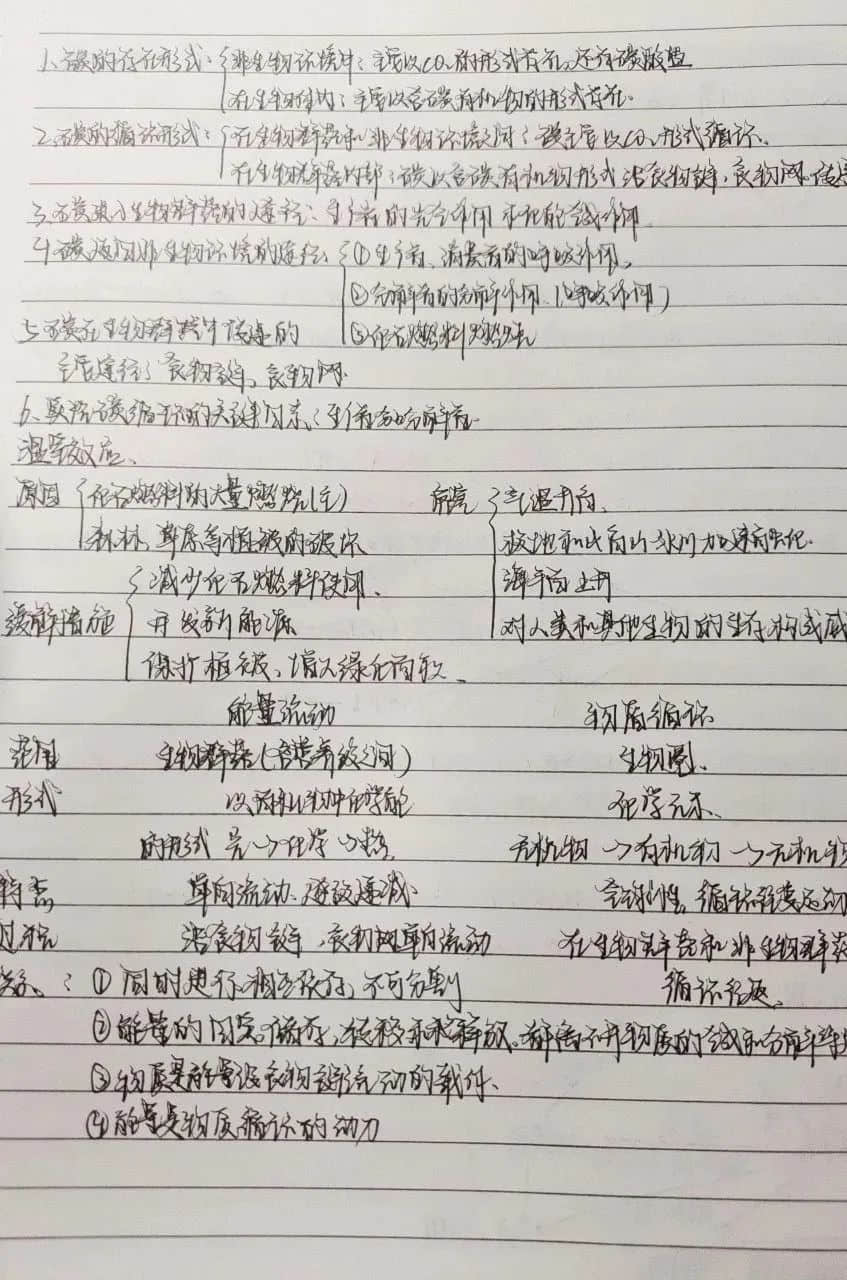 1、碳的存在形式：非生物环境中：主要以CO₂的形式存在,还有碳酸盐
在生物体内：主要以含碳有机物的形式存在.
2、碳的循环形式：在生物群落和非生物环境之间：碳主要以CO₂形式循环.
在生物群落内部：碳以含碳有机物形式 沿食物链,食物网
3、碳进入生物群落的途径：生产者的光合作用 和化能合成作用
4、碳返回非生物环境的途径：①生产者、消费者的呼吸作用.
②分解者的分解作用.(呼吸作用)
③化石燃料燃烧
5、碳在生物群落中传递的
主要途径：食物链,食物网.
6、联系碳循环的关键因素：生产者和分解者
温室效应.
原因 化石燃料的大量燃烧(主)
森林,草原等植被的破坏
危害 气温升高,
极地和高山冰川加速融化.
海平面上升
对人类和其他生物的生存构成威
缓解措施 减少化石燃料使用.
开发新能源
保护植被,增大绿化面积.
能量流动 物质循环
范围 生物群落(各营养级之间) 生物圈.
形式 以有机物中化学能 化学元素.
的形式 光→化学→热. 无机物→有机物→无机物
特点 单向流动、逐级递减. 全球性,循环往复运动
过程 沿食物链,食物网单向流动 在生物群落和非生物
循环往返.
关系：①同时进行,相互依存,不可分割
②能量的固定、储存,转移和释放.都离不开物质的合成和分解等
③物质是能量沿食物链流动的载体.
④能量是物质循环的动力